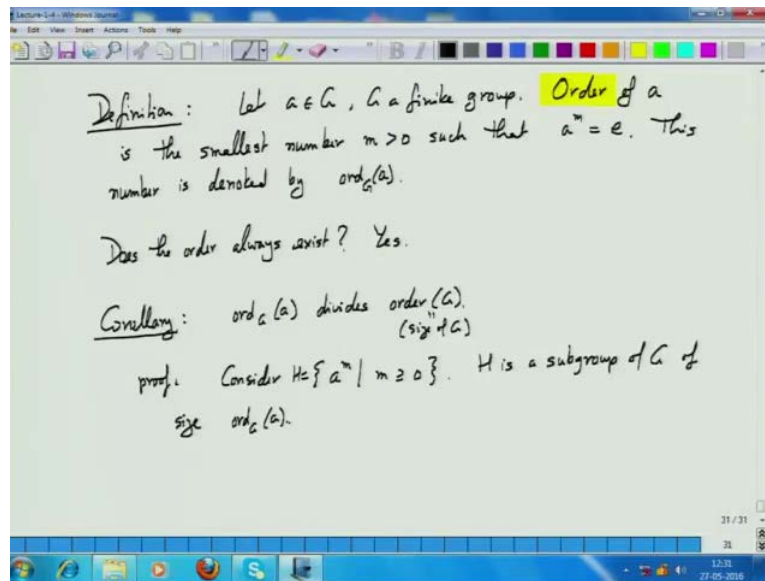 Lecture-1-4 - Windows Journal
File Edit View Insert Actions Tools Help
Definition: Let a ∈ G, G a finite group. Order of a
is the smallest number m > 0 such that a^m = e. This
number is denoted by ord_G(a).
Does the order always exist? Yes.
Corollary: ord_G(a) divides order(G).
(size of G)
proof. Consider H = { a^m | m ≥ 0 }. H is a subgroup of G of
size ord_G(a).
31 / 31
31
12:31
27-05-2016